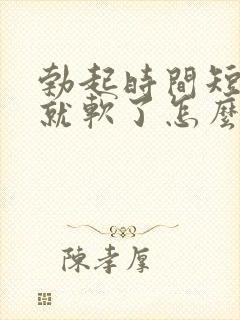 勃起時間短
就軟了怎麼
陳孝厚